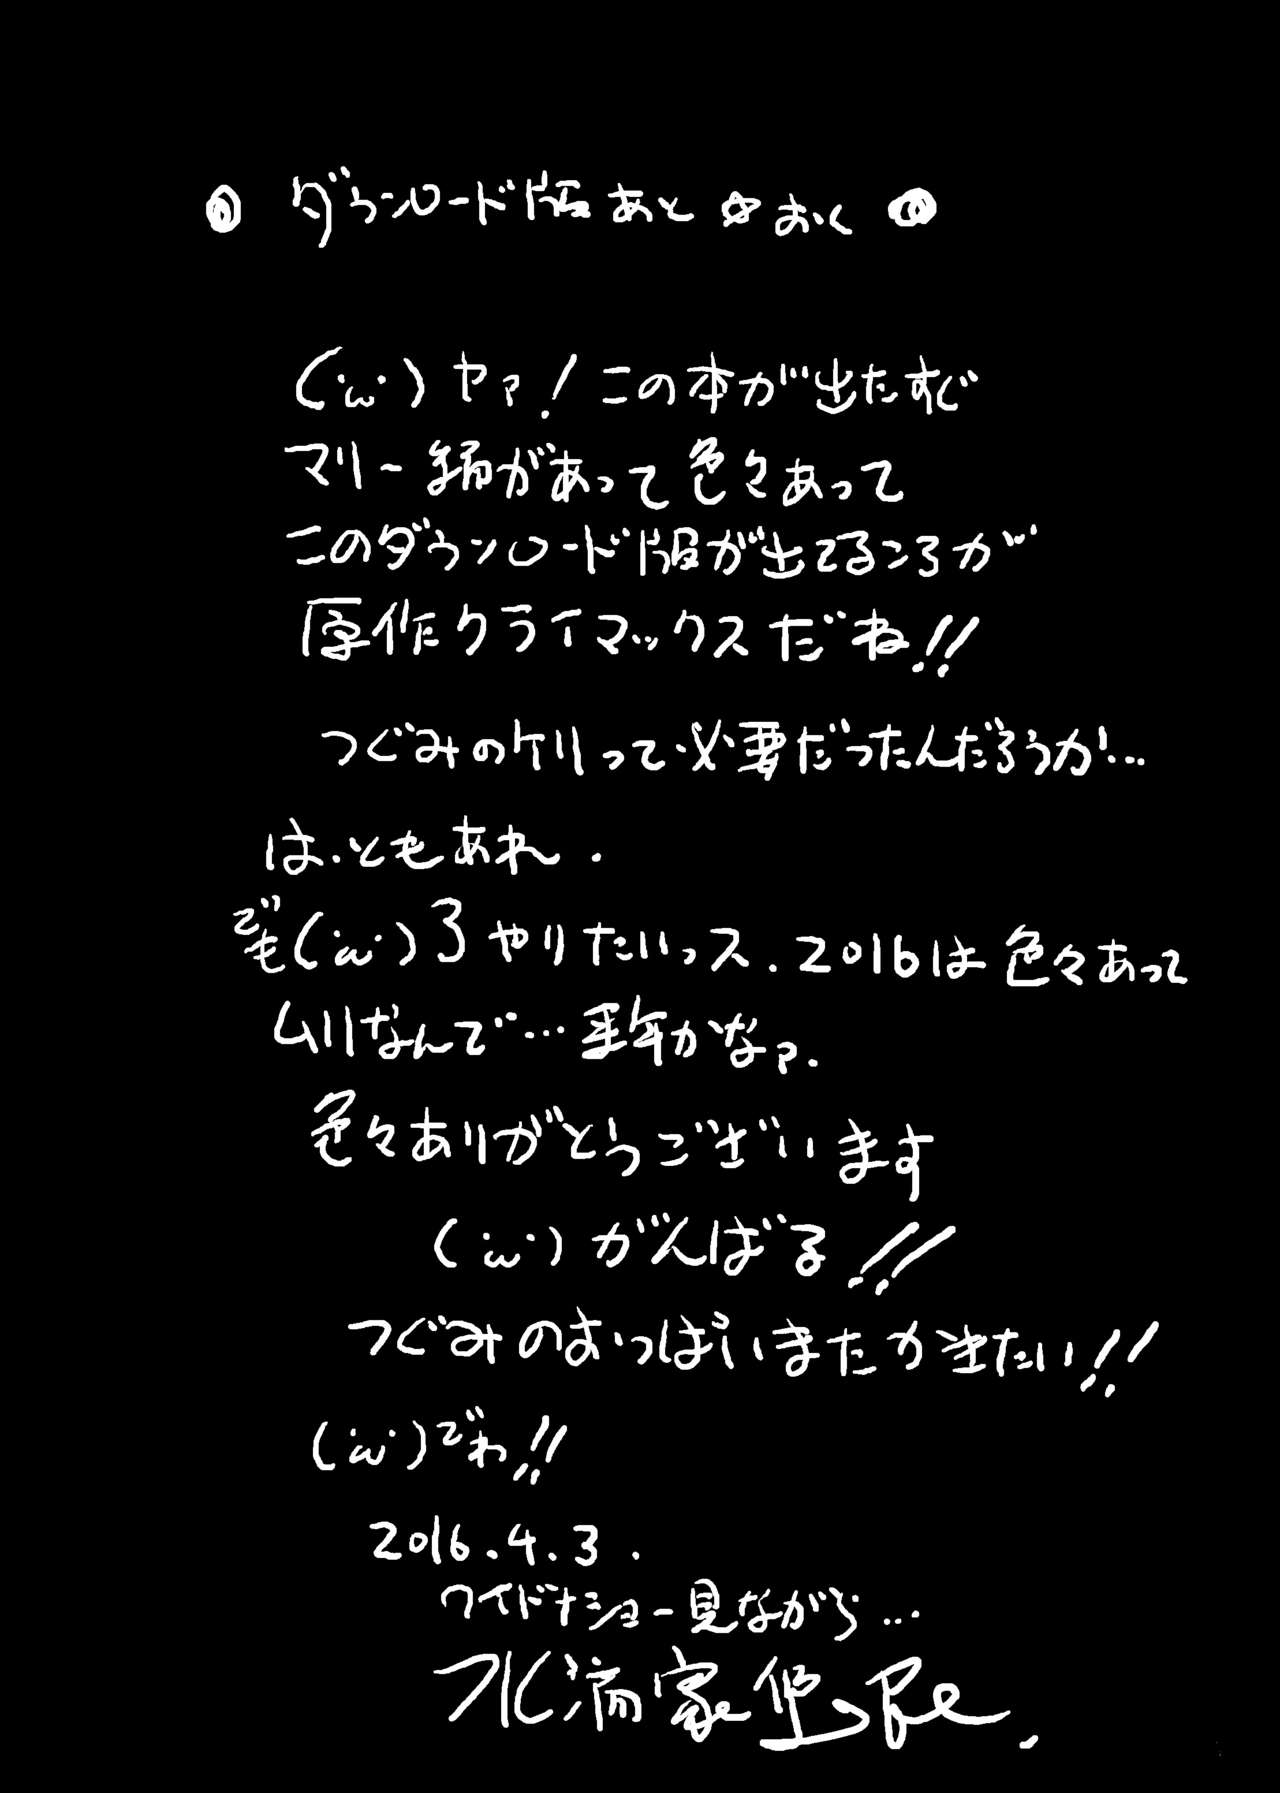 ◎ ダウンロード版あと☆おく ◎
(´ω`)ヤァ！この本が出たすぐ
マリー編があって色々あって
このダウンロード版が出てるころが
原作クライマックスだね!!
つぐみのケリって必要だったんだろうか…
は、ともあれ．
でも(´ω`)3やりたいっス．2016は色々あって
ムリなんで…来年かなァ．
色々ありがとうございます
(´ω`)がんばる!!
つぐみのおっぱいまたかきたい!!
(´ω`)でわ!!
2016.4.3.
ワイドナショー見ながら…
水滴家